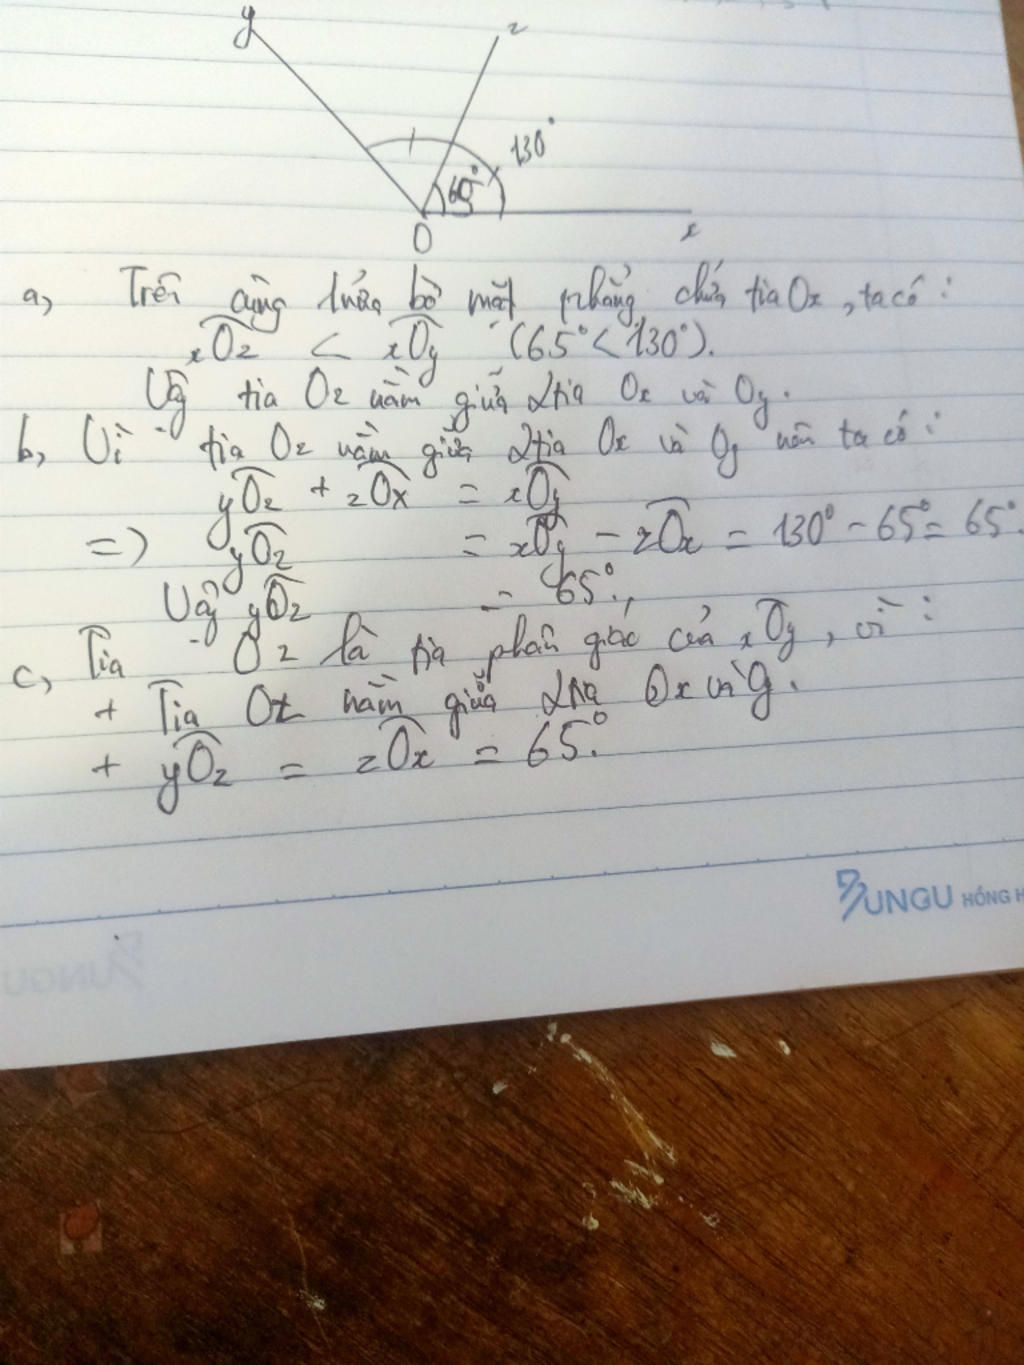 y
z
130°
65°
O
x
a, Trên cùng nửa bờ mặt phẳng chứa tia Ox, ta có:
xOz < xOy (65° < 130°).
Vậy tia Oz nằm giữa 2 tia Ox và Oy.
b, Vì tia Oz nằm giữa 2 tia Ox và Oy nên ta có:
yOz + zOx = xOy
=) yOz = xOy - zOx = 130° - 65° = 65°.
Vậy yOz = 65°.
c, Tia Oz là tia phân giác của xOy, vì:
+ Tia Oz nằm giữa 2 tia Ox và y.
+ yOz = zOx = 65°.
BUNGU HỒNG H